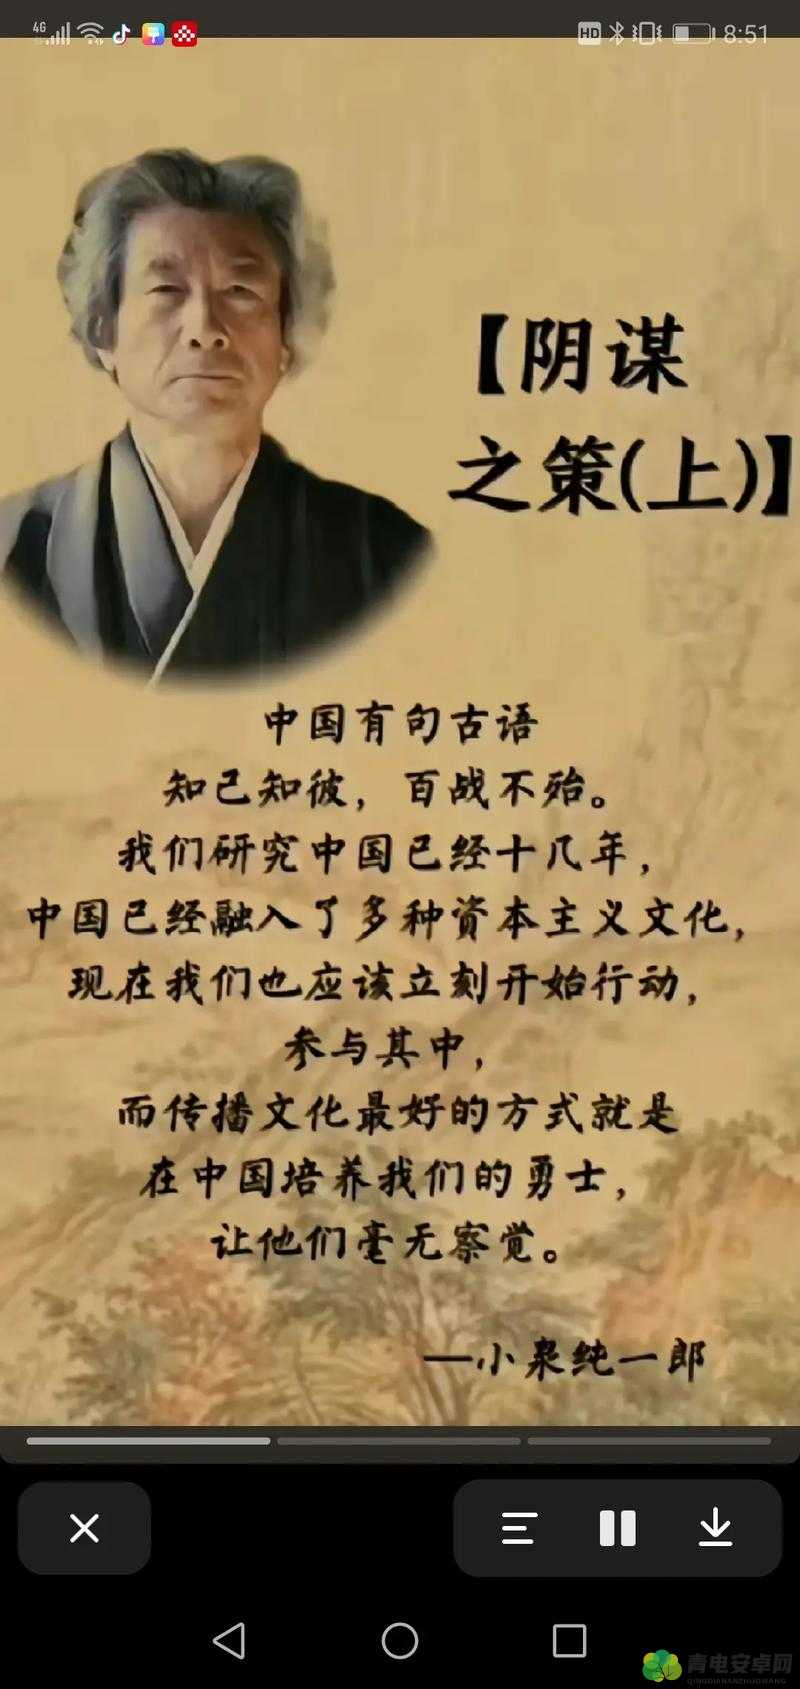 4G
HD
8:51
【阴谋
之策(上)】
中国有句古语
知己知彼，百战不殆。
我们研究中国已经十几年，
中国已经融入了多种資本主义文化，
现在我们也应该立刻开始行动，
参与其中，
而传播文化最好的方式就是
在中国培养我们的勇士，
让他们毫无察觉。
—小泉纯一郎
青电安卓网
QINGDIANANZHUOWANG